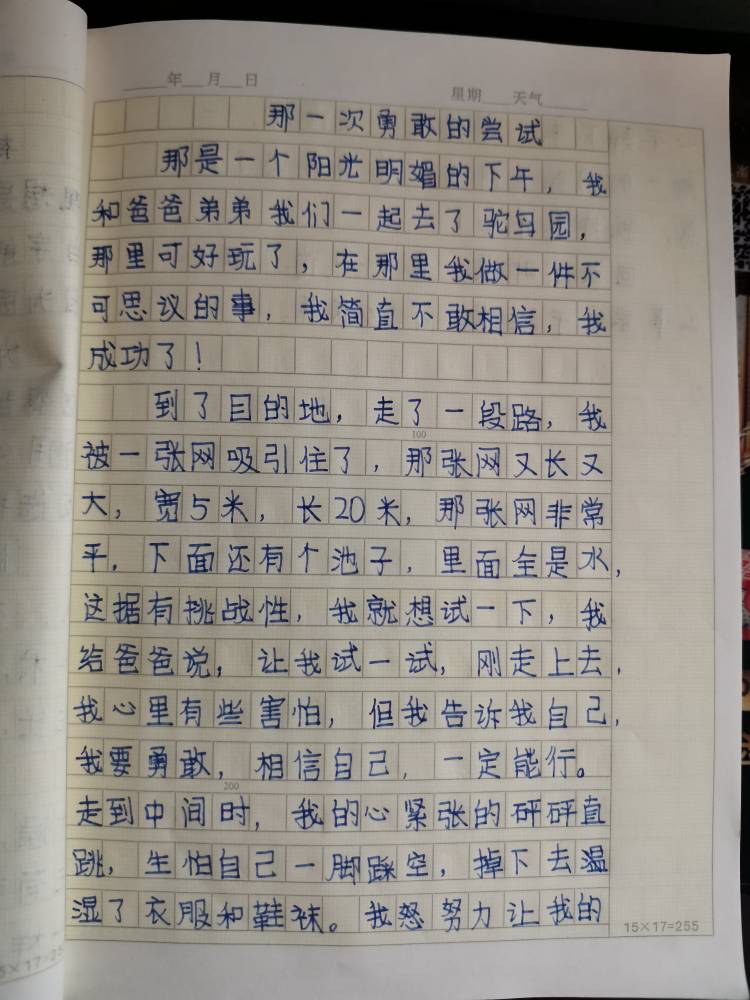 年 月 日 星期 天气
那一次勇敢的尝试
那是一个阳光明媚的下午，我
和爸爸弟弟我们一起去了驼鸟园，
那里可好玩了，在那里我做一件不
可思议的事，我简直不敢相信，我
成功了！
到了目的地，走了一段路，我
100
被一张网吸引住了，那张网又长又
大，宽5米，长20米，那张网非常
平，下面还有个池子，里面全是水，
这据有挑战性，我就想试一下，我
给爸爸说，让我试一试，刚走上去，
我心里有些害怕，但我告诉我自己，
我要勇敢，相信自己，一定能行。
200
走到中间时，我的心紧张的砰砰直
跳，生怕自己一脚踩空，掉下去温
湿了衣服和鞋袜。我怒努力让我的
15×17=255